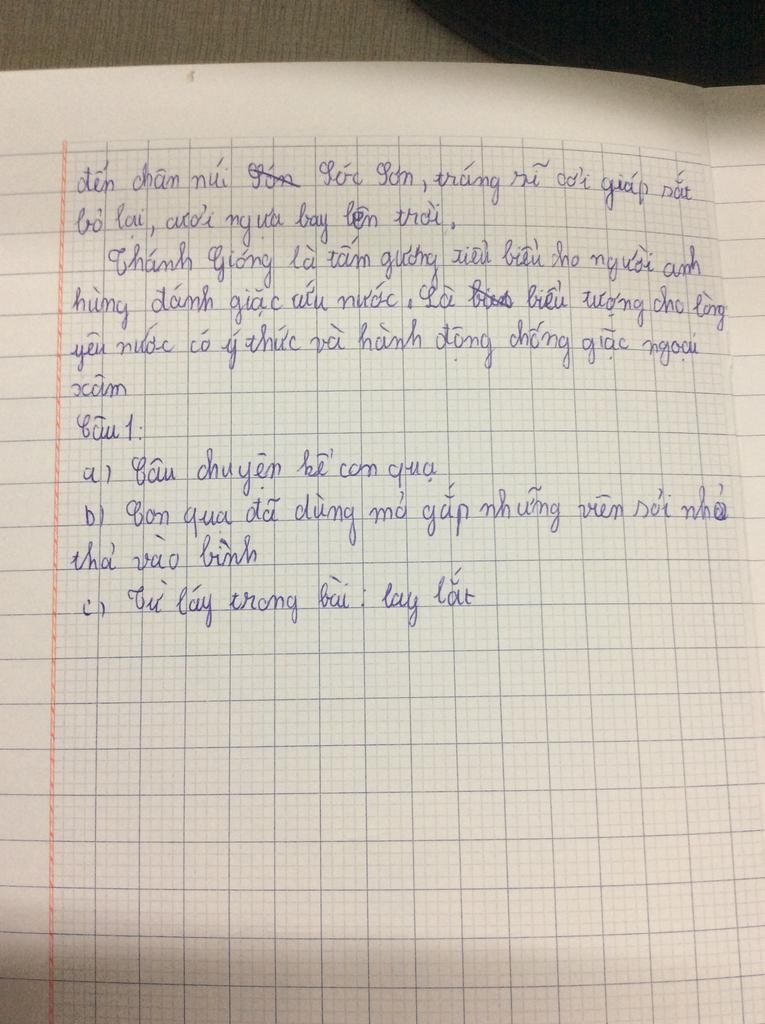 đến chân núi Sóc Sơn, tráng sĩ cởi giáp sắt
bỏ lại, cưỡi ngựa bay lên trời.
Thánh Gióng là tấm gương tiêu biểu cho người anh
hùng đánh giặc cứu nước. Là biểu tượng cho lòng
yêu nước có ý thức và hành động chống giặc ngoại
xâm
Câu 1:
a) Câu chuyện kể con quạ
b) Con quạ đã dùng mỏ gắp những viên sỏi nhỏ
thả vào bình
c) Từ láy trong bài: lay lắt